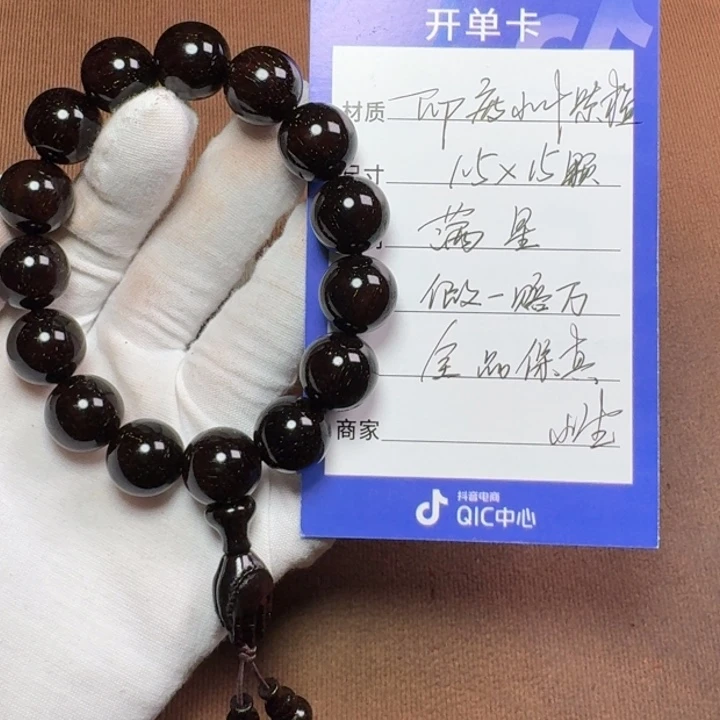 开单卡
材质 印度小叶紫檀
尺寸 1.5×15颗
满星
假一赔万
全品保真
商家
抖音电商
QIC中心